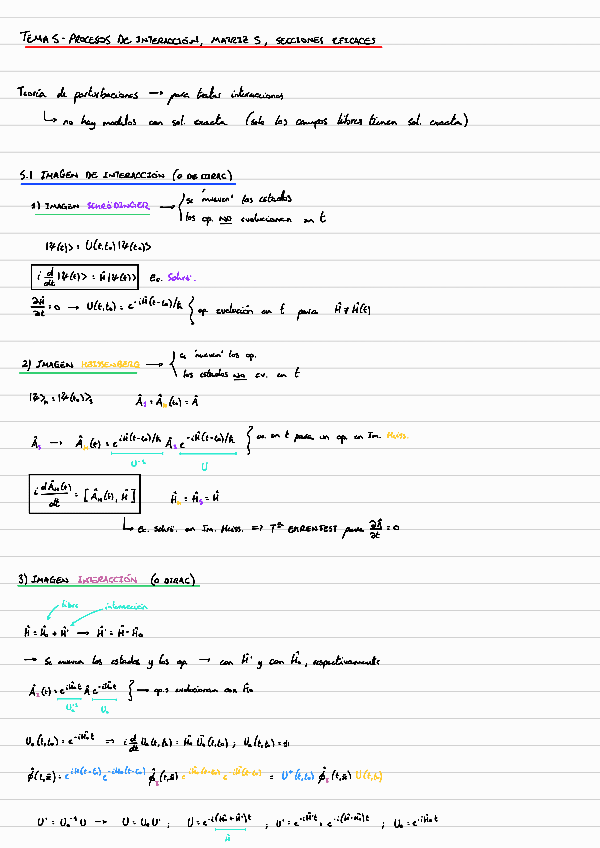 TEMA 5 - PROCESOS DE INTERACCIÓN, MATRIZ S, SECCIONES EFICACES
Teoría de perturbaciones → para tratar interacciones
↳ no hay modelos con sol. exacta (solo los campos libres tienen sol. exacta)
5.1 IMAGEN DE INTERACCIÓN (O DE DIRAC)
1) IMAGEN SCHRÖDINGER → { se "mueven" los estados
los op. NO evolucionan en t
|Ψ(t)> = U(t,t₀)|Ψ(t₀)>
i d/dt |Ψ(t)> = Ĥ|Ψ(t)> Ec. Schrö.
∂Ĥ/∂t = 0 → U(t,t₀) = e^{-iĤ(t-t₀)/ħ} } op. evolución en t para Ĥ ≠ Ĥ(t)
2) IMAGEN HEISSENBERG → { se "mueven" los op.
los estados NO ev. en t
|Ψ>_H = |Ψ(t₀)>_S Â_S = Â_H(t₀) = Â
Â_S → Â_H(t) = e^{iĤ(t-t₀)/ħ} Â_S e^{-iĤ(t-t₀)/ħ} } ev. en t para un op. en Im. Heiss.
U⁻¹ U
i dÂ_H(t)/dt = [Â_H(t), Ĥ] Ĥ_H = Ĥ_S = Ĥ
↳ Ec. Schrö. en Im. Heiss. => Tª EHRENFEST para ∂Â/∂t = 0
3) IMAGEN INTERACCIÓN (O DIRAC)
libre interacción
Ĥ = Ĥ₀ + Ĥ' → Ĥ' = Ĥ - Ĥ₀
→ Se mueven los estados y los op. → con Ĥ' y con Ĥ₀, respectivamente
Â_I(t) = e^{iĤ₀t} Â e^{-iĤ₀t} } → op.s evolucionan con Ĥ₀
U₀⁻¹ U₀
U₀(t,t₀) = e^{-iĤ₀t} → i d/dt U₀(t,t₀) = Ĥ₀ U₀(t,t₀) ; U₀(t,t₀) = 1
U' = U₀⁻¹U → U = U₀U' ; U = e^{-i(Ĥ₀+Ĥ')t} ; U' = e^{-iĤ't} = e^{-i(Ĥ-Ĥ₀)t} ; U₀ = e^{-iĤ₀t}
Ĥ